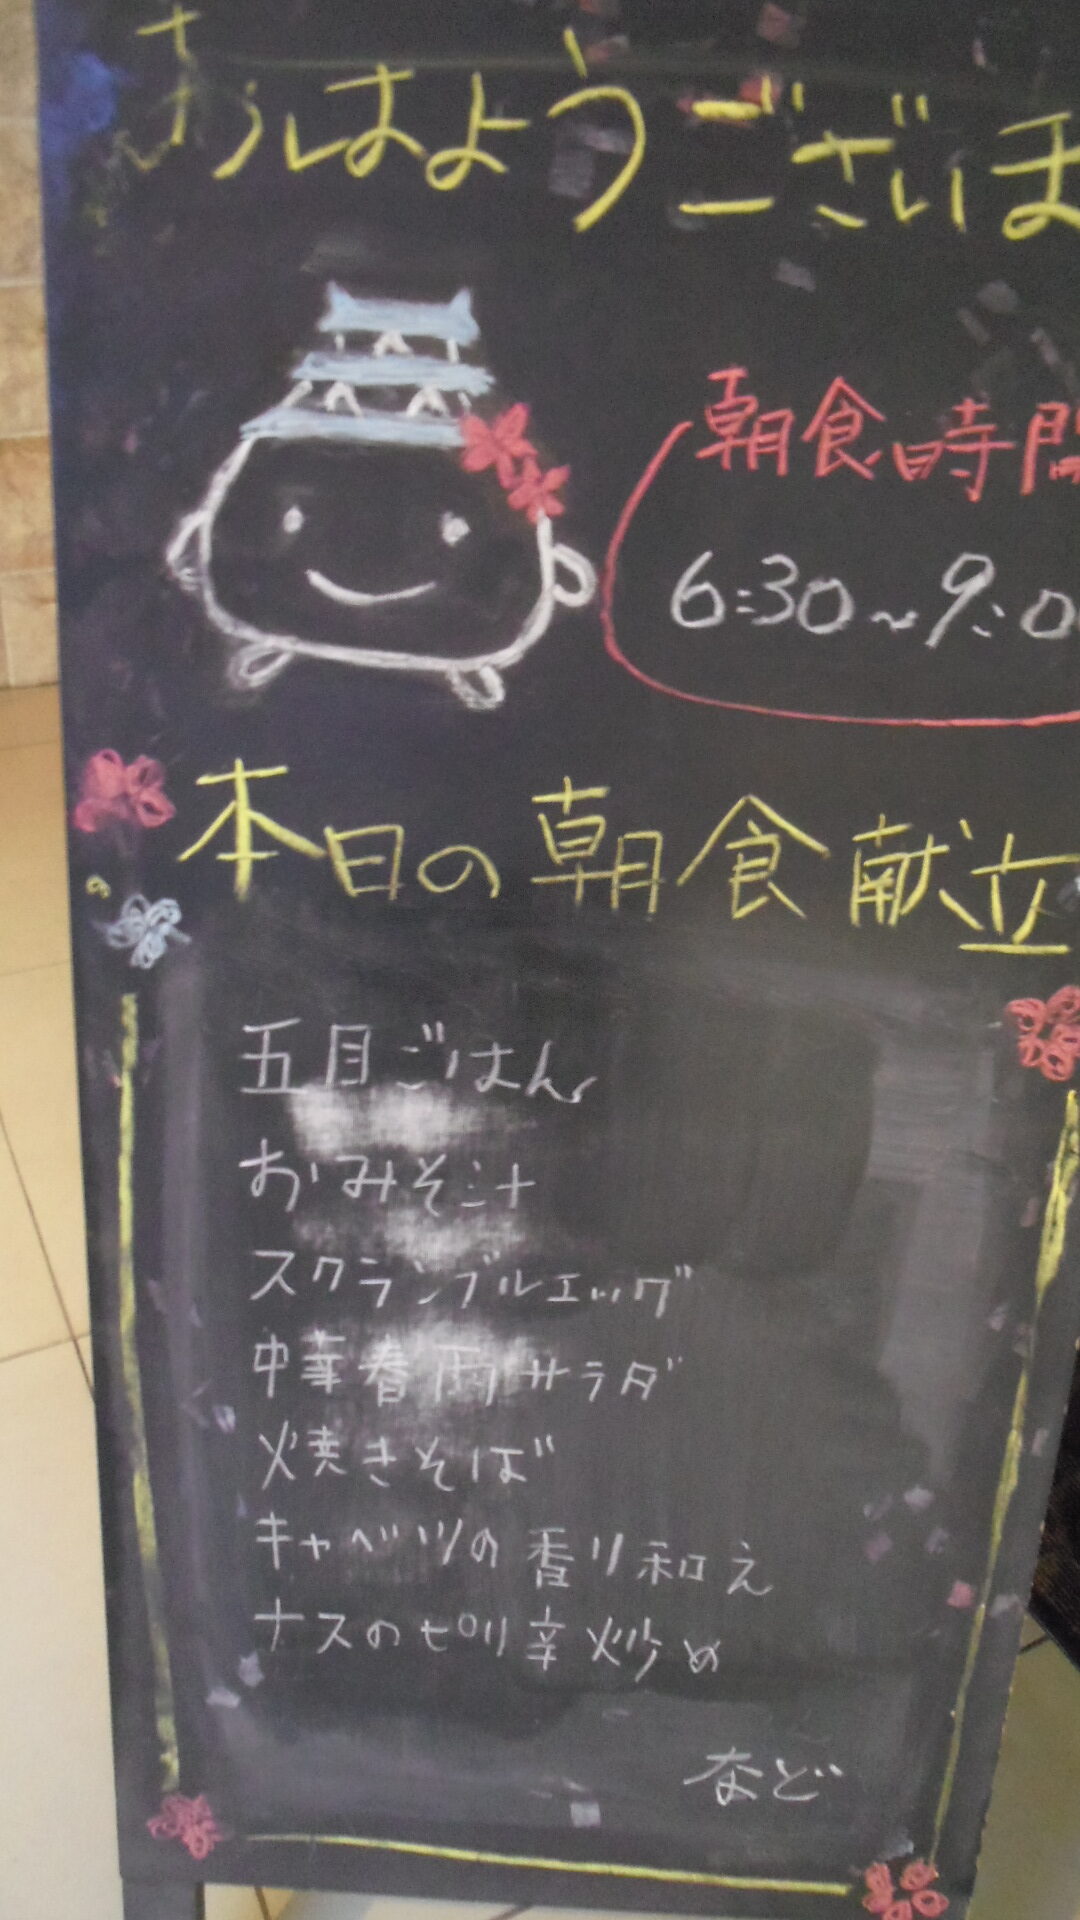 おはようございま
朝食時間
6:30~9:00
本日の朝食献立
五目ごはん
おみそ汁
スクランブルエッグ
中華春雨サラダ
焼きそば
キャベツの香り和え
ナスのピリ辛炒め
など